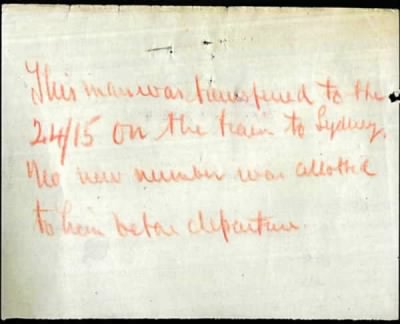 This man was transferred to the
24/15 on the train to Sydney.
No new number was allotted
to him before departure